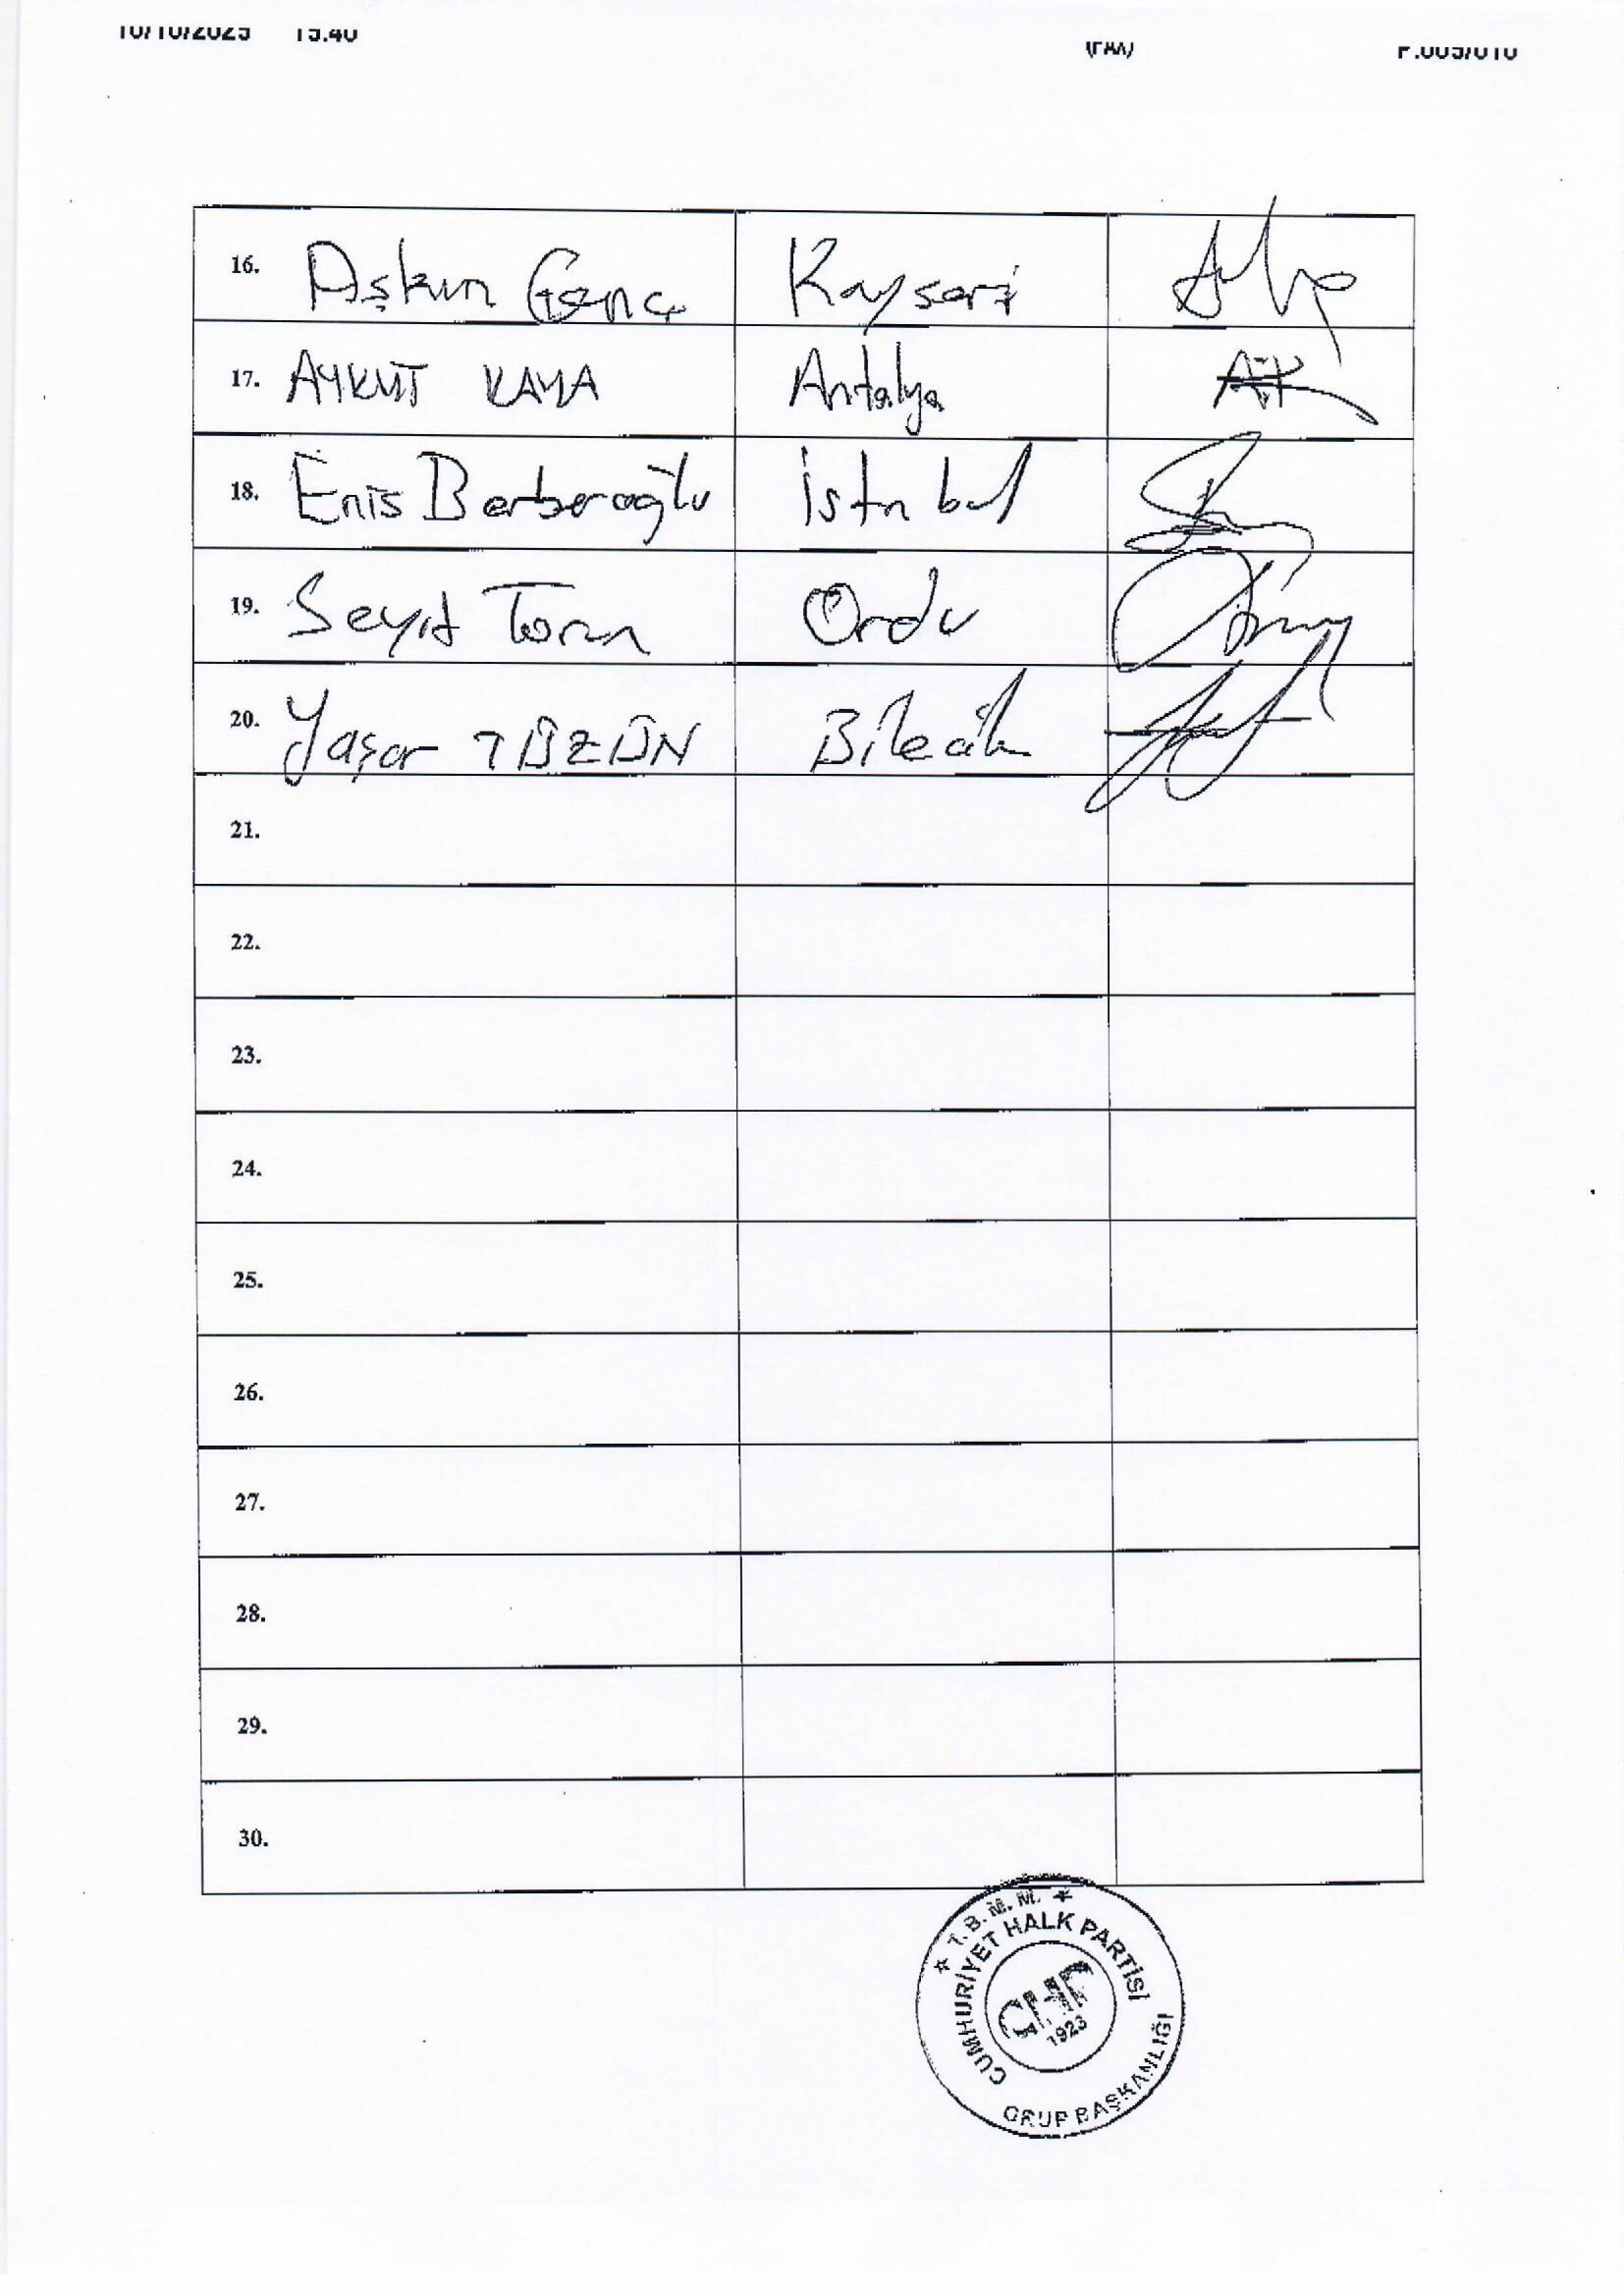 10/10/2023 15:40 (FAX) P.005/010
16. Aşkın Genç Kayseri
17. AYKUT KAYA Antalya
18. Enis Berberoğlu İstnbul
19. Seyit Torun Ordu
20. Yaşar TÜZÜN Bilecik
21.
22.
23.
24.
25.
26.
27.
28.
29.
30.
★ T.B.M.M. ★
CUMHURİYET HALK PARTİSİ
CHP
1923
GRUP BAŞKANLIĞI